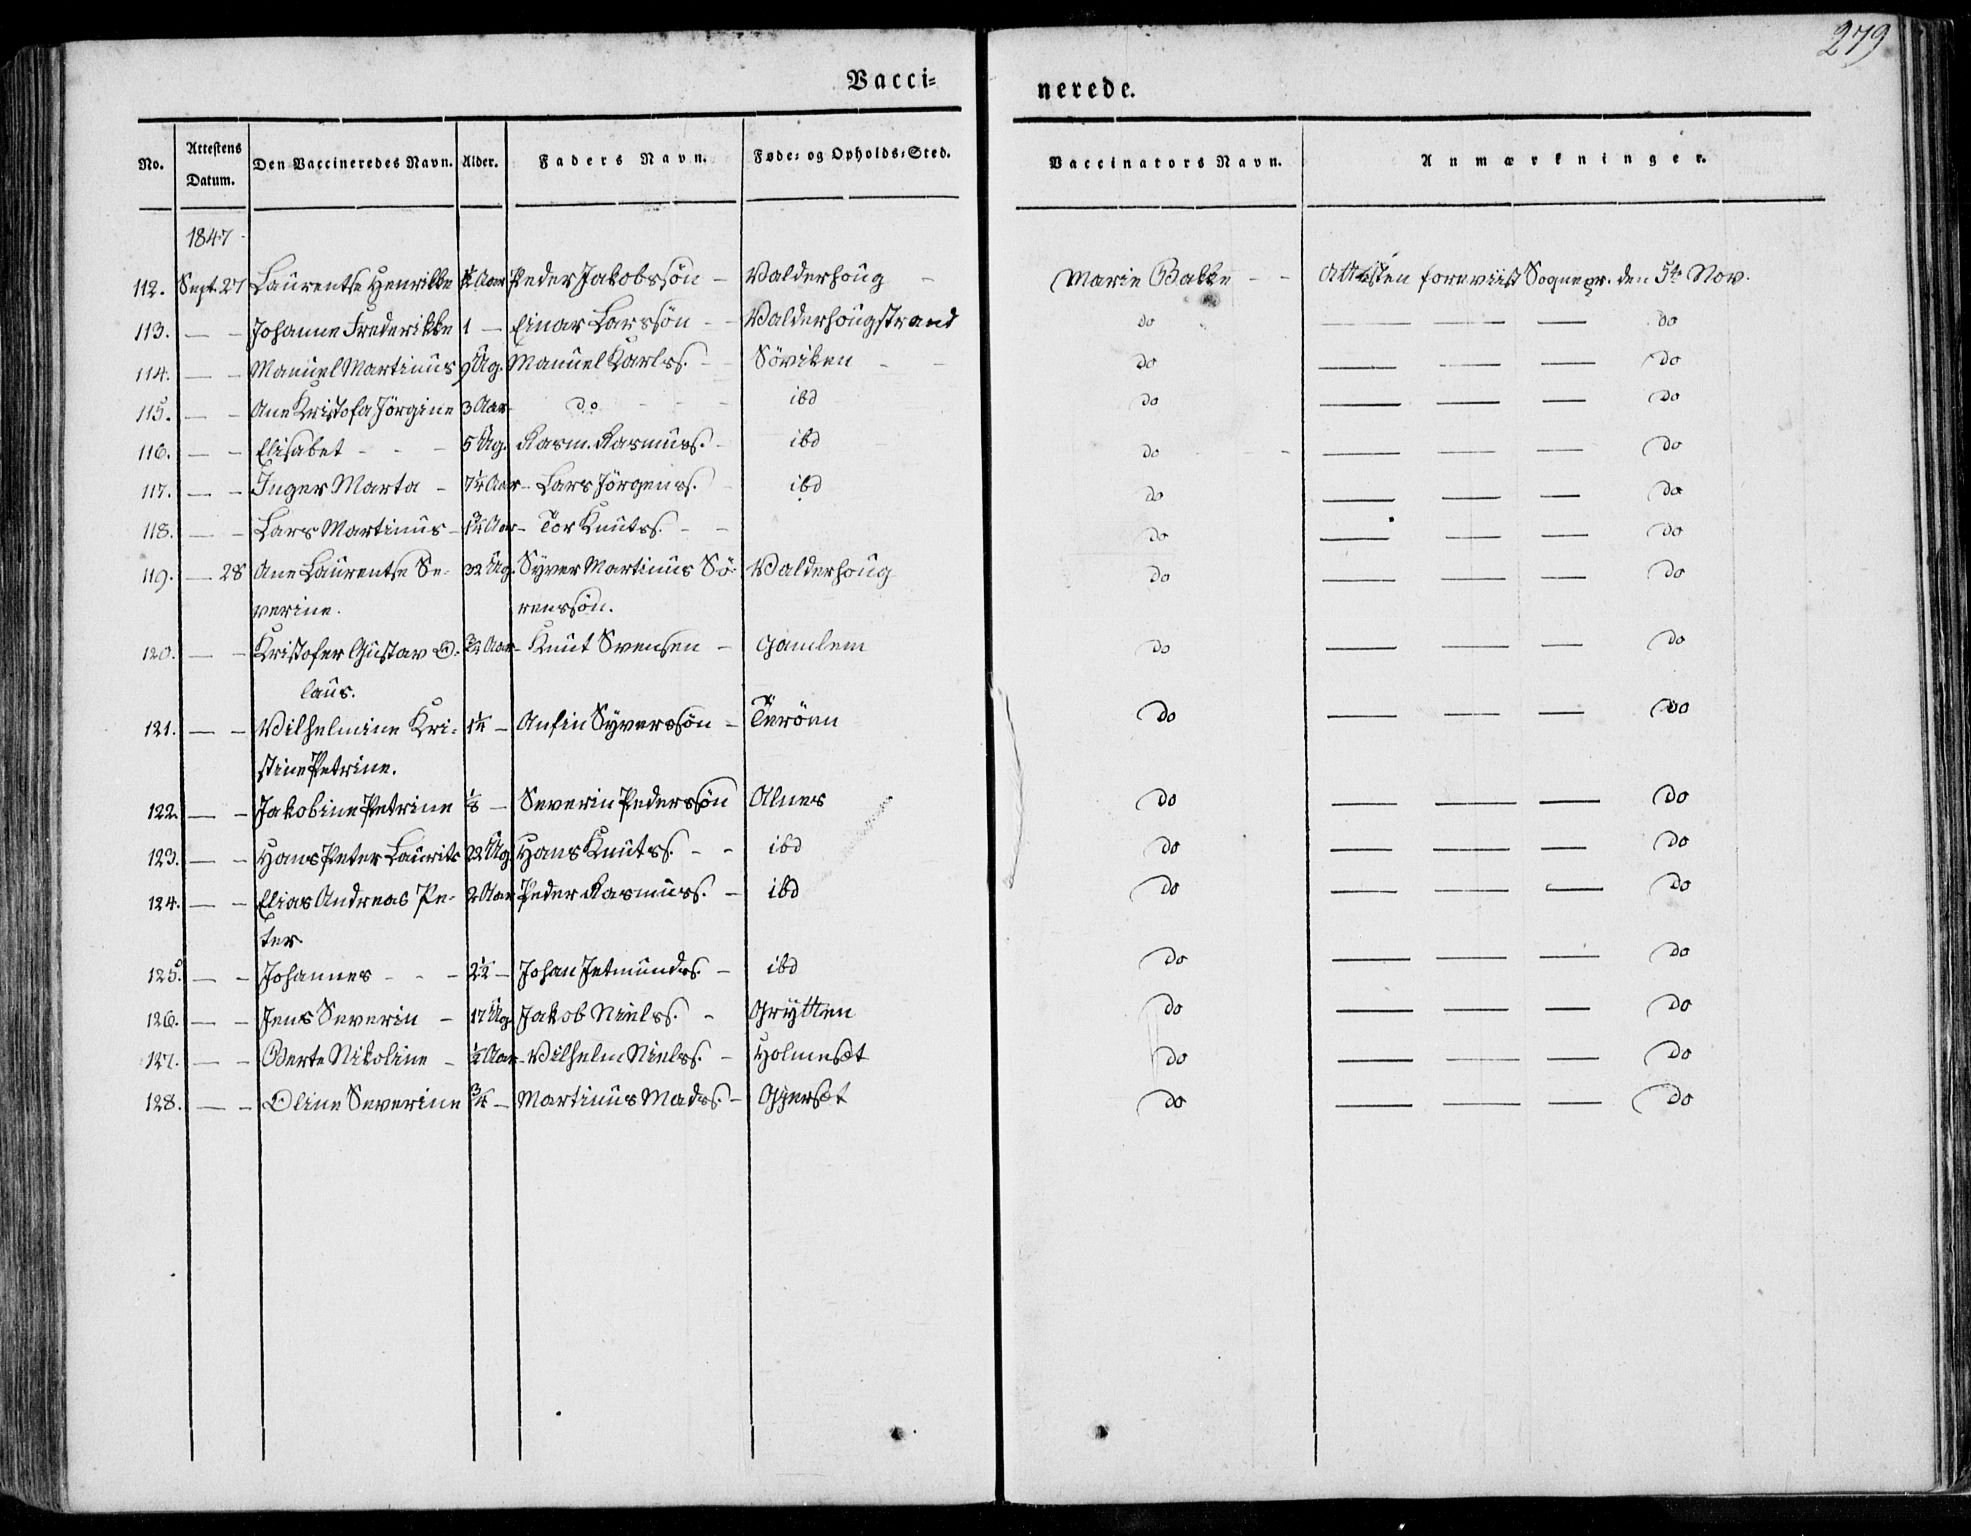 279
Vacci- nerede.
No. Attestens Datum. Den Vaccineredes Navn. Alder. Faders Navn. Føde- og Opholds-Sted. Vaccinators Navn. Anmærkninger.
1847
112. Sept. 27 Laurentse Henrikke Aar Peder Jakobssøn - Valderhoug - Marie Bakke - - Attesten foreviist Sognepr. den 5te Nov.
113. — - Johanne Frederikke 1 — Einar Larssøn - - Valderhougstrand do — — — do
114. — - Manuel Martinus 9 Ug. Manuel Karlss. - Söviken - - do — — — do
115. — - Ane Kristofa Jörgine 3 Aar do - - - ibd do — — — do
116. — - Elisabet - - - 5 Ug. Rasm. Rasmuss. - ibd do - - — — — do
117. — - Inger Marta - 7½ Aar - Lars Jörgenss. - ibd do — — — do
118. — - Lars Martinus - Aar - Tor Knutss. - - do — — — do
119. — 28 Ane Laurentse Se- 32 Ug. Syver Martinus Sö- Valderhoug do — — — do
verine. renssön.
120. — - Kristofer Gustav O- Aar - Knut Svensen - Gamlem do — — — do
laus.
121. — - Vilhelmine Kri- — Anfin Syverssøn - Turöen do — — — do
stine Petrine.
122. — - Jakobine Petrine — Severin Pederssøn Alnes do — — — do
123. — - Hans Peter Laurits 22 Ug. Hans Knutss. - - ibd do — — — do
124. — - Elias Andreas Pe- 2 Aar Peder Rasmuss. - ibd do — — — do
ter
125. — - Johannes - - - 2½ — Johan Jetmundss. - ibd do — — — do
126. — - Jens Severin - 17 Ug. Jakob Nielss. - Grytten do — — — do
127. — - Berte Nikoline - ½ Aar - Vilhelm Nielss. - Holmeset do — — — do
128. — - Oline Severine ¾ — Martinus Madss. - Gjerset do — — — do